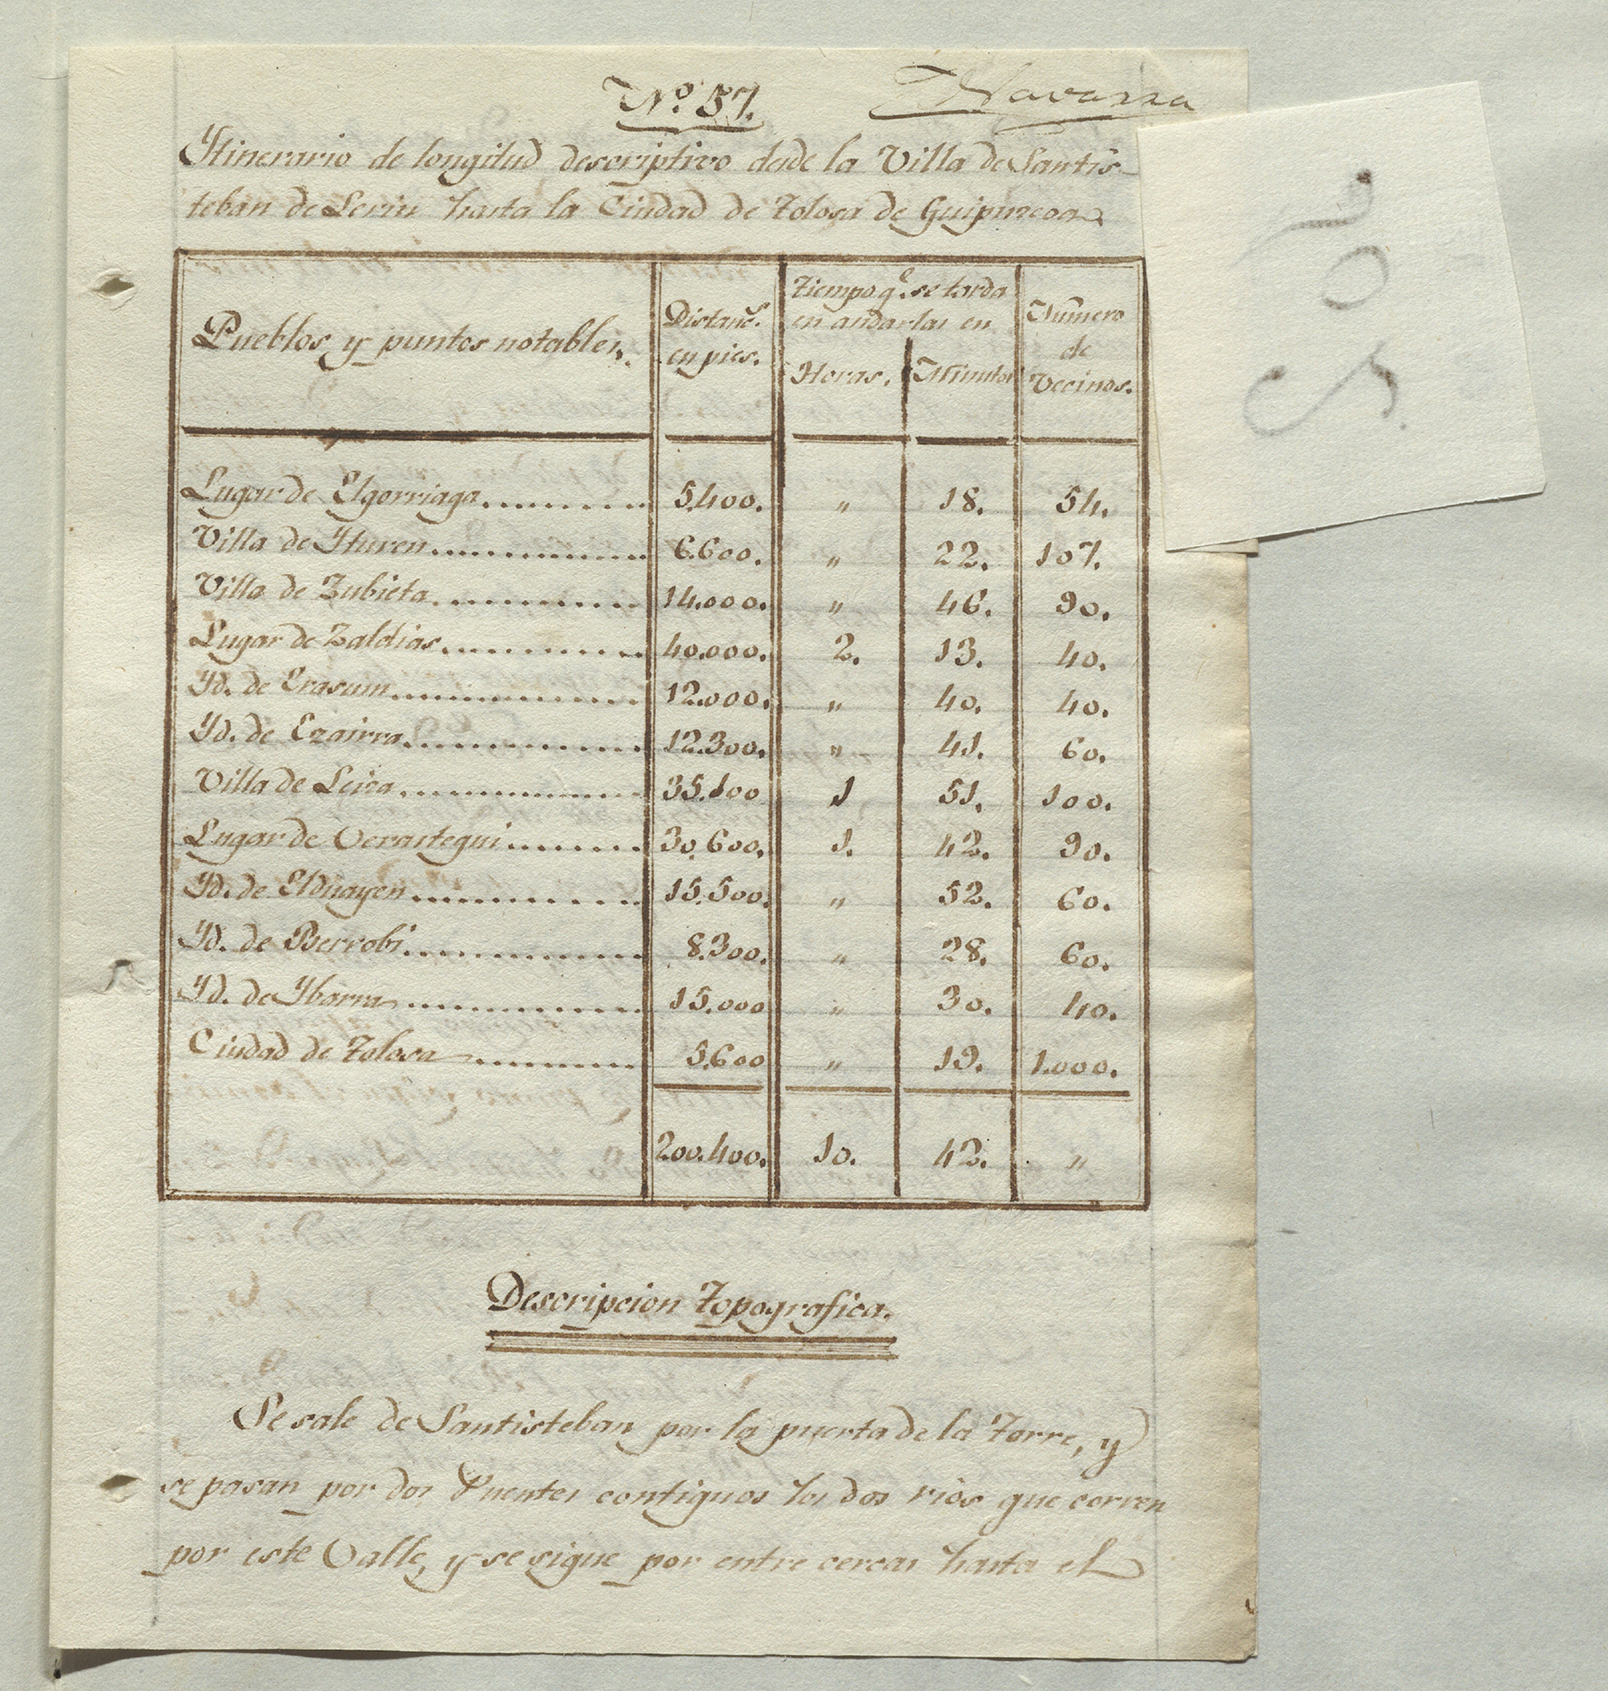 Nº 57.
Navarra
Ytinerario de longitud descriptivo desde la Villa de Santis-
teban de Lerin hasta la Ciudad de Tolosa de Guipuzcoa
Pueblos y puntos notables.
Distanc.s en pies.
Tiempo q.e se tarda en andarlas en
Horas. Minutos
Número de Vecinos.
Lugar de Elgorriaga 5.400. " 18. 54.
Villa de Yturen 6.600. " 22. 107.
Villa de Zubieta 14.000. " 46. 90.
Lugar de Zaldias 40.000. 2. 13. 40.
Yd. de Erasum 12.000. " 40. 40.
Yd. de Ezairra 12.300. " 41. 60.
Villa de Leiza 35.100 1 51. 100.
Lugar de Verastegui 30.600. 1. 42. 90.
Yd. de Elduayen 15.500. " 52. 60.
Yd. de Berrobi 8.300. " 28. 60.
Yd. de Ybarra 15.000 " 30. 40.
Ciudad de Tolosa 5.600 " 19. 1.000.
200.400. 10. 42. "
Descripcion Topografica.
Se sale de Santisteban por la puerta de la Torre, y
se pasan por dos Puentes contiguos los dos rios que corren
por este Valle, y se sigue por entre cercas hasta el